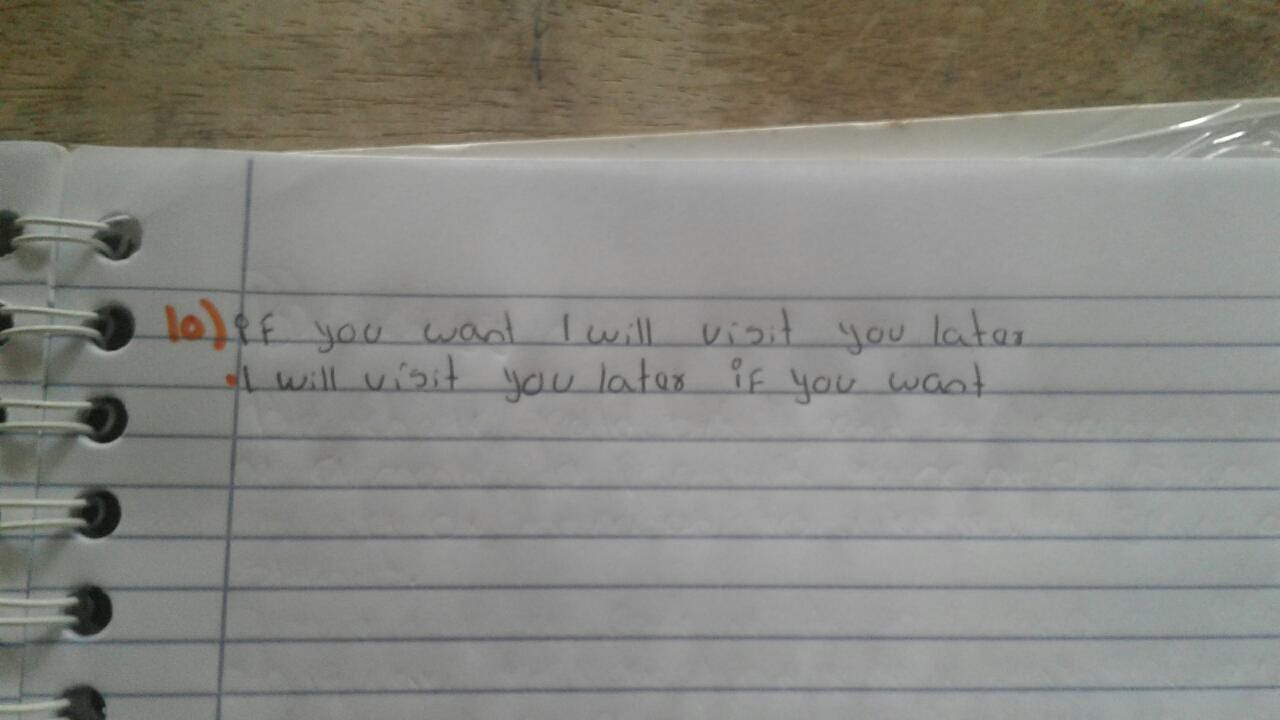 10) if you want I will visit you later
• I will visit you later if you want